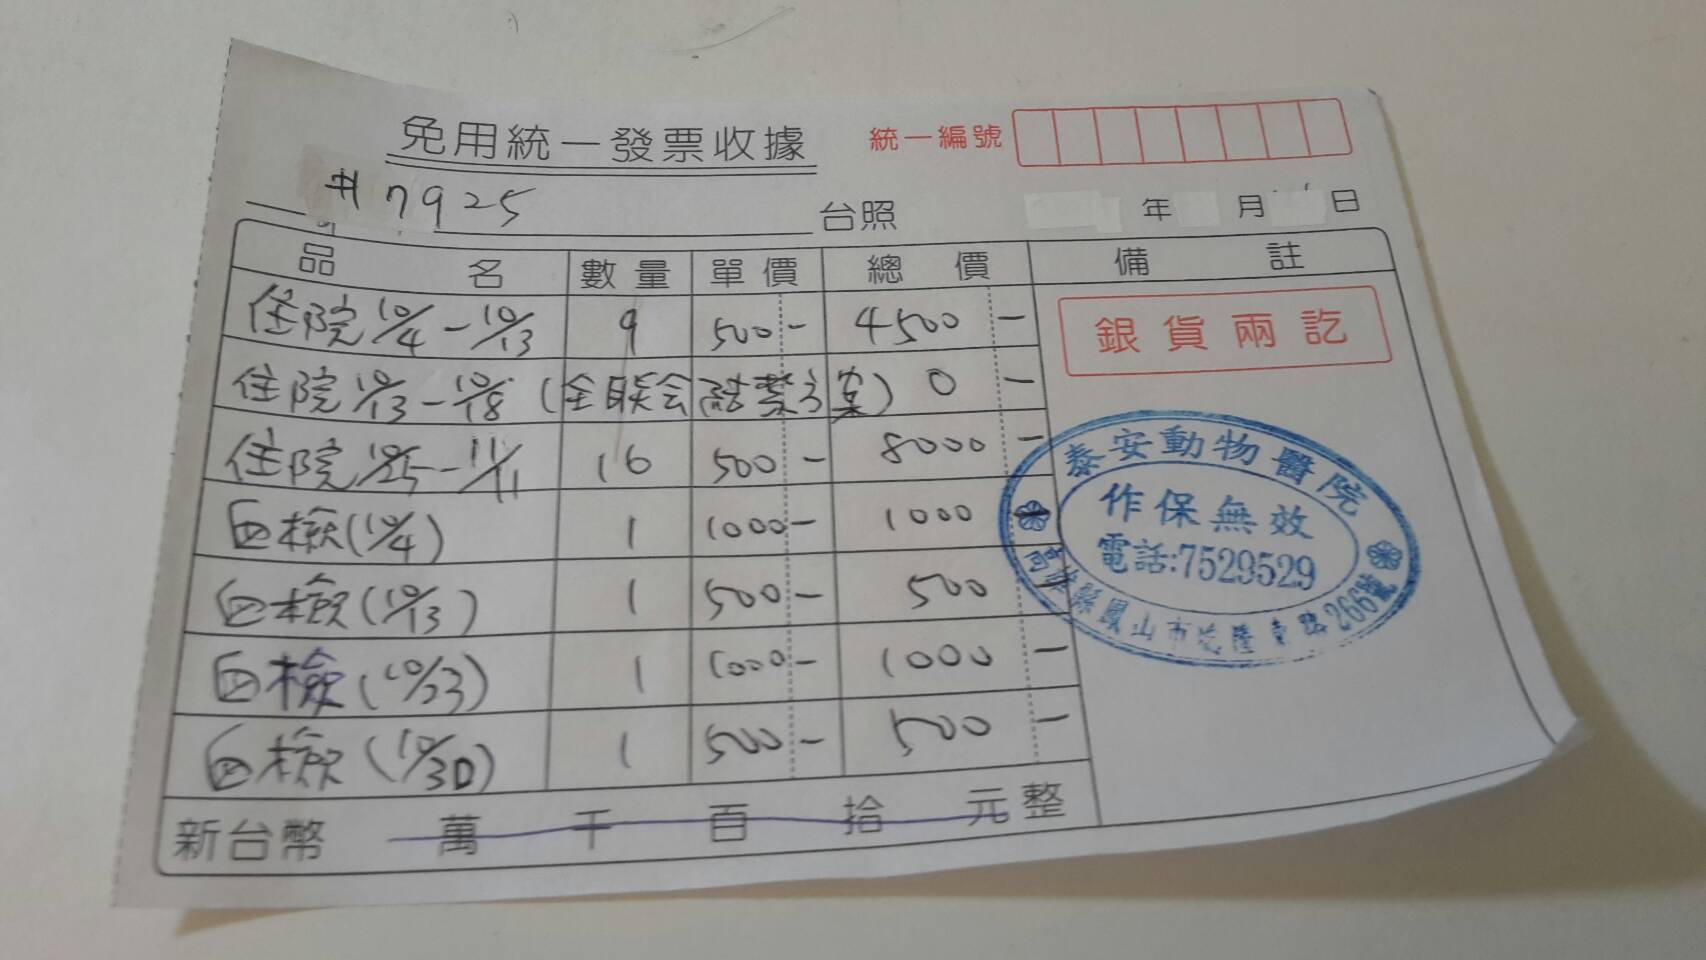 免用統一發票收據 統一編號
#7925 台照 年 月 日
品名 數量 單價 總價 備註
住院 10/4-10/13 9 500- 4500 -
住院 10/13-10/18 (全联会 方案) 0 -
住院 10/25-11/11 16 500- 8000 -
血檢(10/4) 1 1000- 1000 -
血檢(10/13) 1 500- 500 -
血檢(10/23) 1 1000- 1000 -
血檢(10/30) 1 500- 500 -
新台幣 萬 千 百 拾 元整
銀貨兩訖
泰安動物醫院
作保無效
電話:7529529
高雄縣鳳山市 隆東路266號